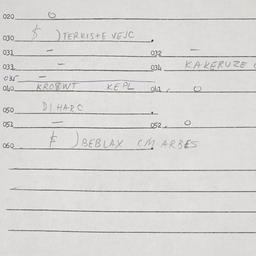 020 O
030 $ ) TERKISTE VEJC .
031 – 032 –
033 – 034 KAKERUZE
035 –
040 KROBWT KEPL 041. O
050 DIHARC .
051 – 052. O
060 $ ) BEBLAX CM ARBES